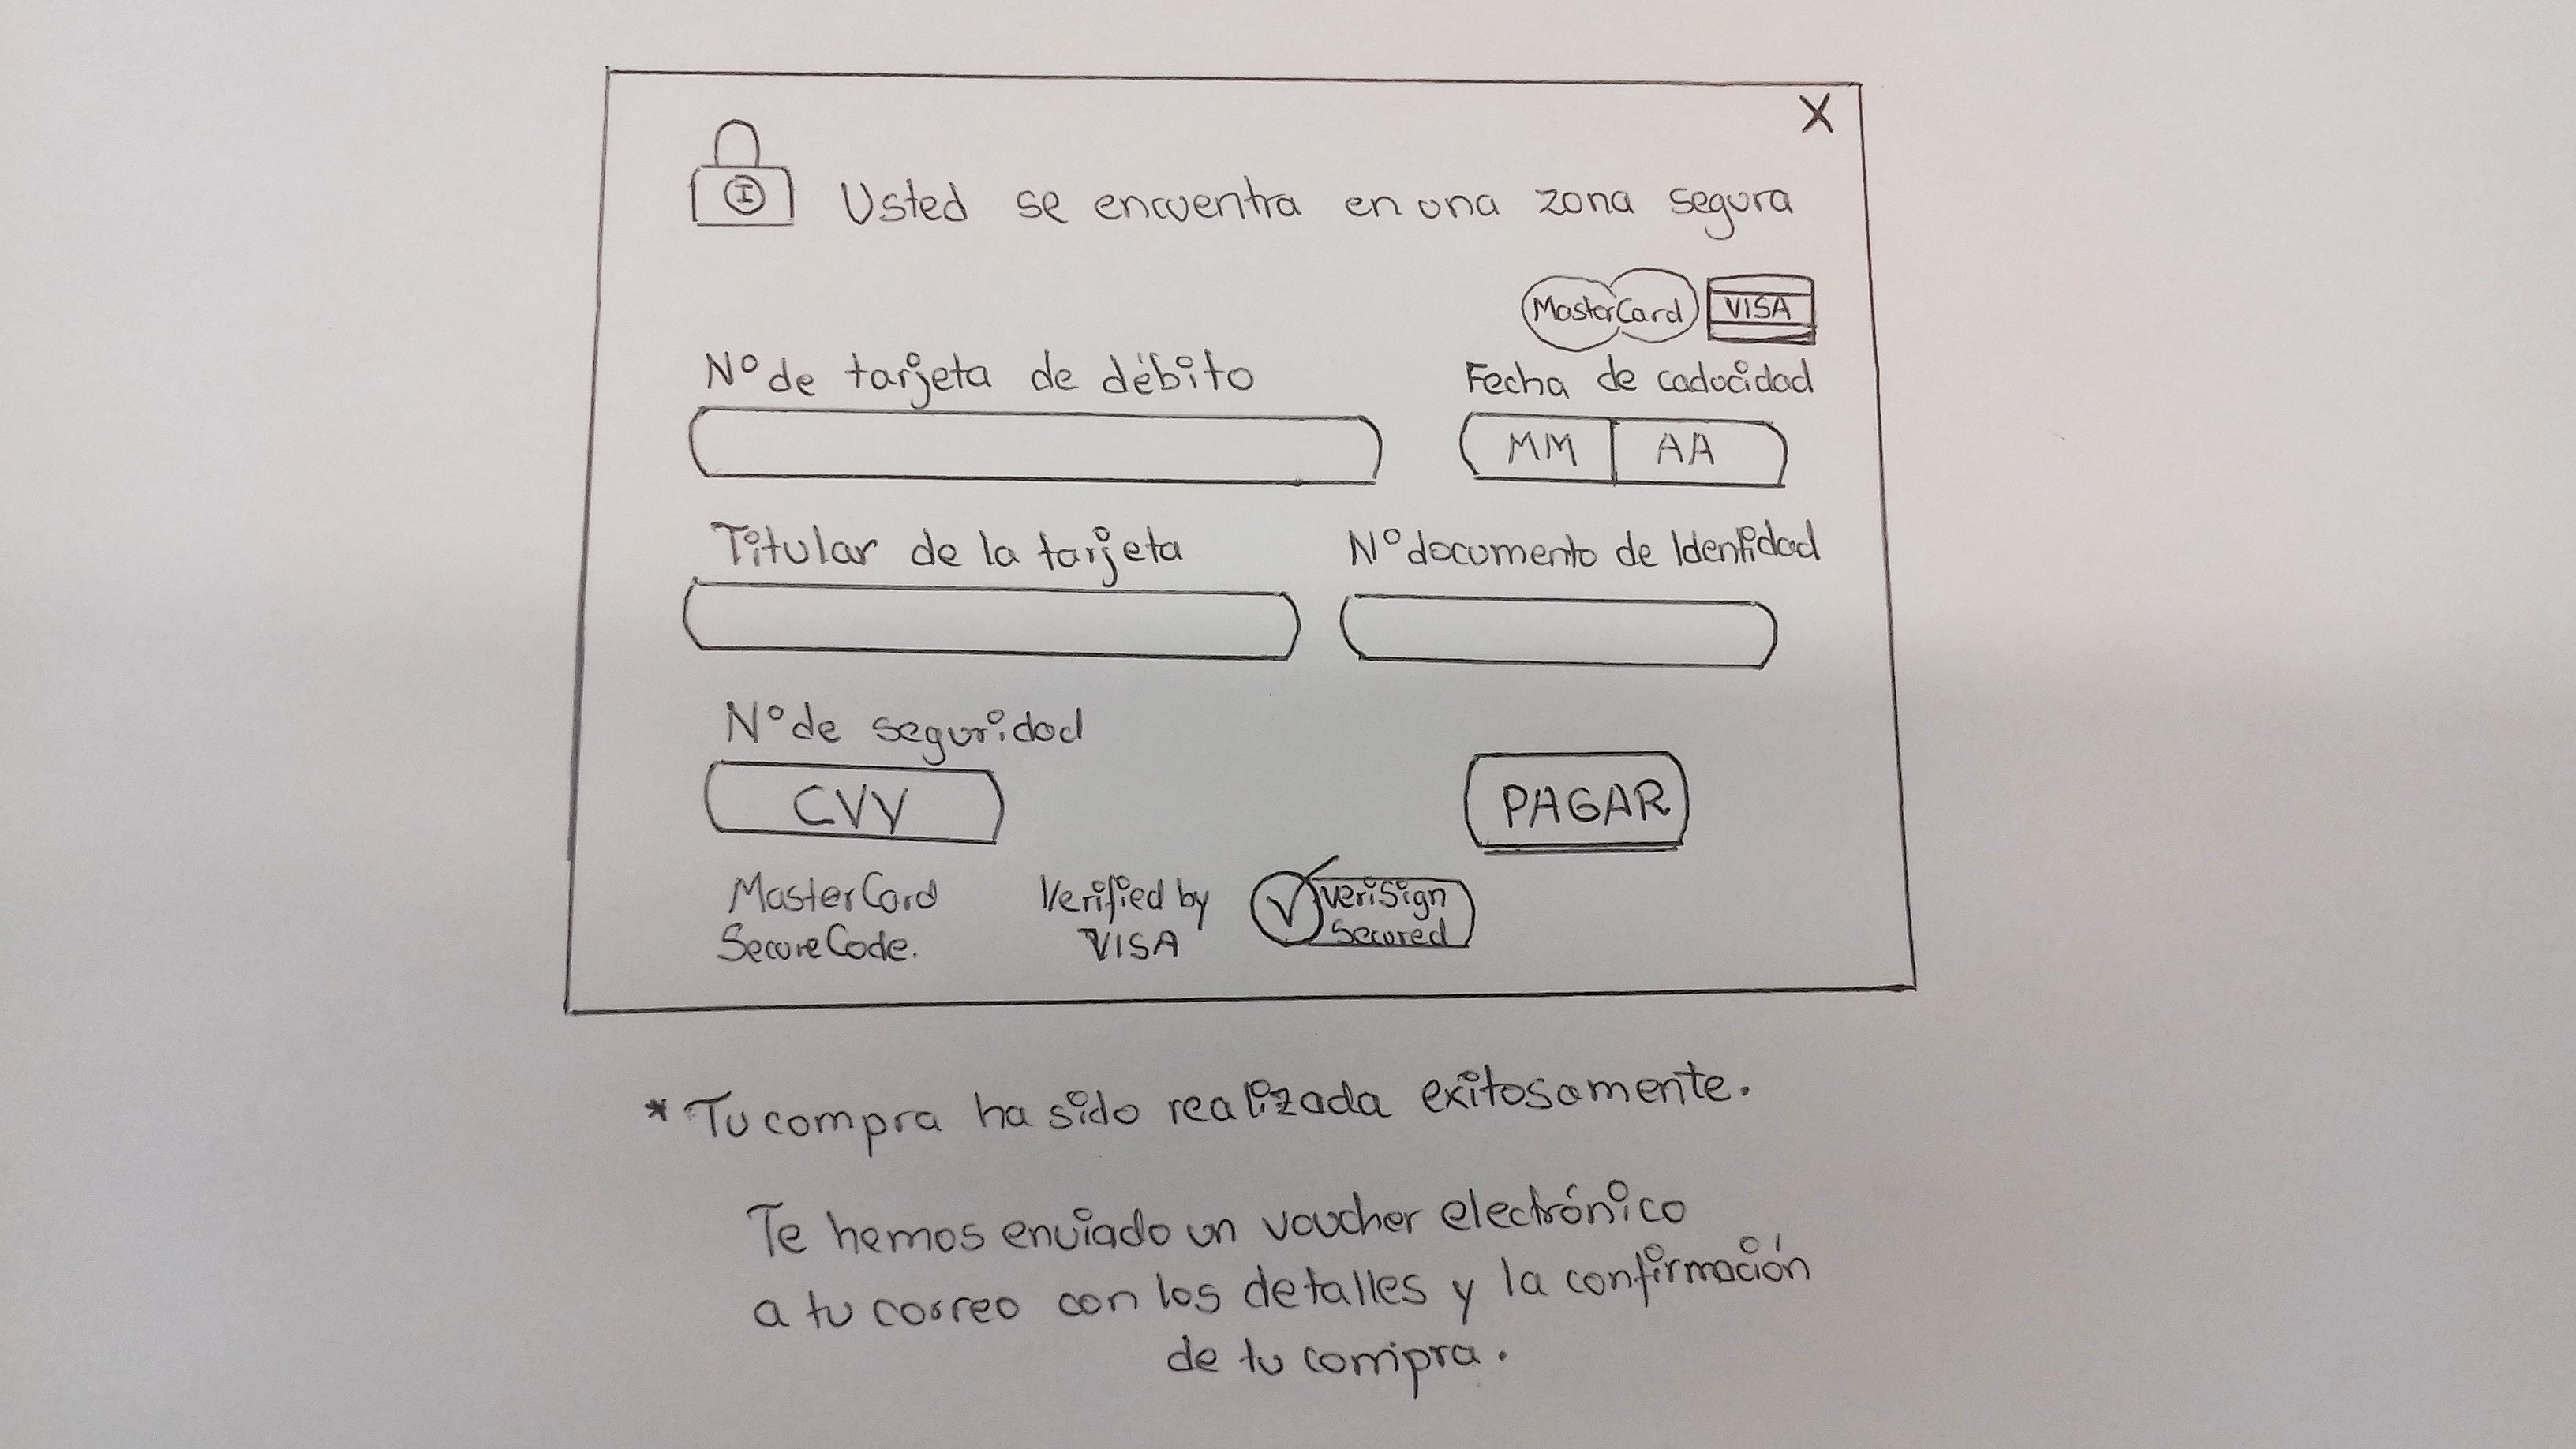 X
I Usted se encuentra en una zona segura
MasterCard VISA
N° de tarjeta de débito Fecha de caducidad
MM AA
Titular de la tarjeta N° documento de Identidad
N° de seguridad
CVV PAGAR
MasterCard Verified by VeriSign
SecureCode. VISA Secured
* Tu compra ha sido realizada exitosamente.
Te hemos enviado un voucher electrónico
a tu correo con los detalles y la confirmación
de tu compra.